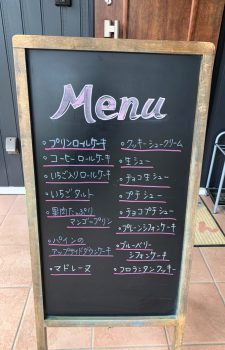 Menu
○プリンロールケーキ
○コーヒーロールケーキ
○いちご入りロールケーキ
○いちごタルト
○果肉たっぷり
マンゴープリン
○パインの
アップサイドダウンケーキ
○マドレーヌ
○クッキーシュークリーム
○生シュー
○チョコ生シュー
○プチシュー
○チョコプチシュー
○プレーンシフォンケーキ
○ブルーベリー
シフォンケーキ
○フロランタンクッキー